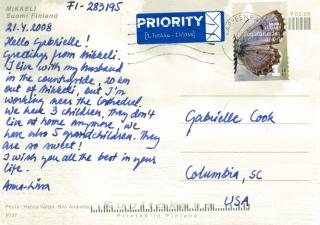 MIKKELI
Suomi Finland
FI-283195
21.4.2008
Hello Gabrielle!
Greetings from Mikkeli.
I live with my husband
in the countryside, 20 km
out of Mikkeli, but I'm
working near the Cathedral.
We have 3 children, they don't
live at home anymore, we
have also 5 grandchildren. They
are so sweet!
I wish you all the best in your
life.
Anna-Liisa
PRIORITY
[1. luokka - 1 klass]
Gabrielle Cook
Columbia, SC
USA
Printed in Finland